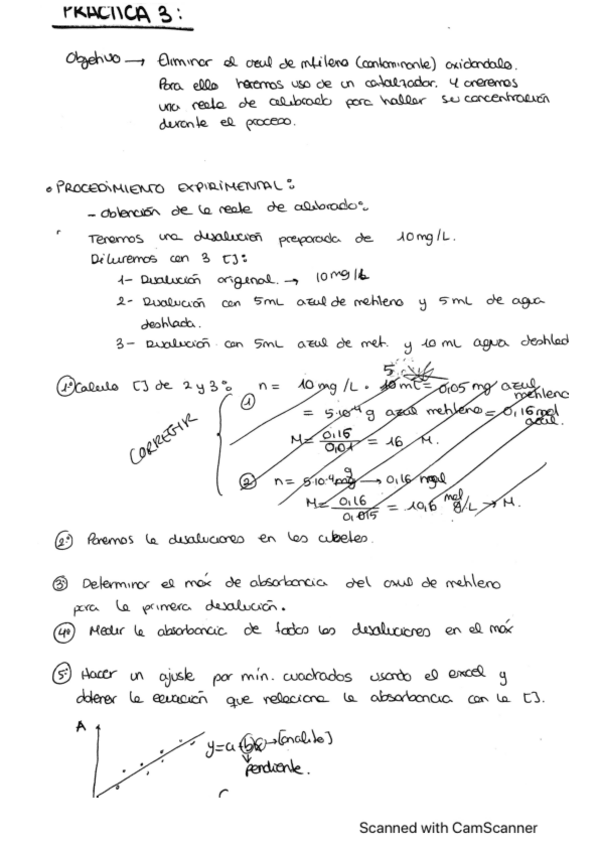 PRACTICA 3:
Objetivo → Eliminar el azul de metileno (contaminante) oxidandolo.
Para ello haremos uso de un catalizador. Y crearemos
una recta de calibrado para hallar su concentración
durante el proceso.
• PROCEDIMIENTO EXPIRIMENTAL:
- Obtención de la recta de calibrado:
Tenemos una disolución preparada de 10mg/L.
Diluiremos con 3 [ ]:
1- Disolución original. → 10mg/L
2- Disolución con 5mL azul de metileno y 5mL de agua
destilada.
3- Disolución con 5mL azul de met. y 10 mL agua destilad
1º Calculo [ ] de 2 y 3: n = 10 mg/L · 5 mL = 0,05 mg azul metileno
① = 5·10⁻⁴ g azul metileno = 0,16 mol azul.
CORREGIR M = 0,16/0,01 = 16 M.
② n = 5·10⁻⁴ g → 0,16 mol
M = 0,16/0,015 = 10,6 mol/L → M.
2º Ponemos la disoluciones en las cubetas.
3º Determinar el máx de absorbancia del azul de metileno
para la primera disolución.
4º Medir la absorbancia de todas las disoluciones en el máx
5º Hacer un ajuste por mín. cuadrados usando el excel y
obtener la ecuación que relacione la absorbancia con la [ ].
A
y=a+bx → [analito]
pendiente.
Scanned with CamScanner